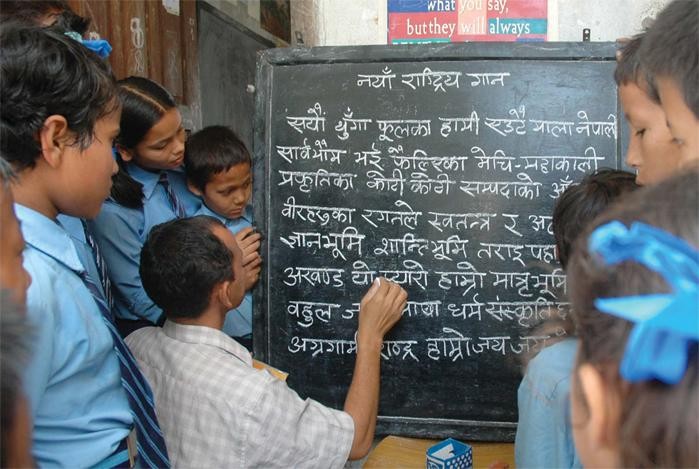 what you say,
but they will always
नयाँ राष्ट्रिय गान
सयौं थुँगा फूलका हामी एउटै माला नेपाली
सार्वभौम भई फैलिएका मेचि-महाकाली
प्रकृतिका कोटी कोटी सम्पदाको आँ
वीरहरुका रगतले स्वतन्त्र र अट
ज्ञानभूमि शान्तिभूमि तराइ पहा
अखण्ड यो प्यारो हाम्रो मातृभूमि
वहुल जा भाषा धर्म संस्कृति
अग्रगामी राष्ट्र हाम्रो जय जय